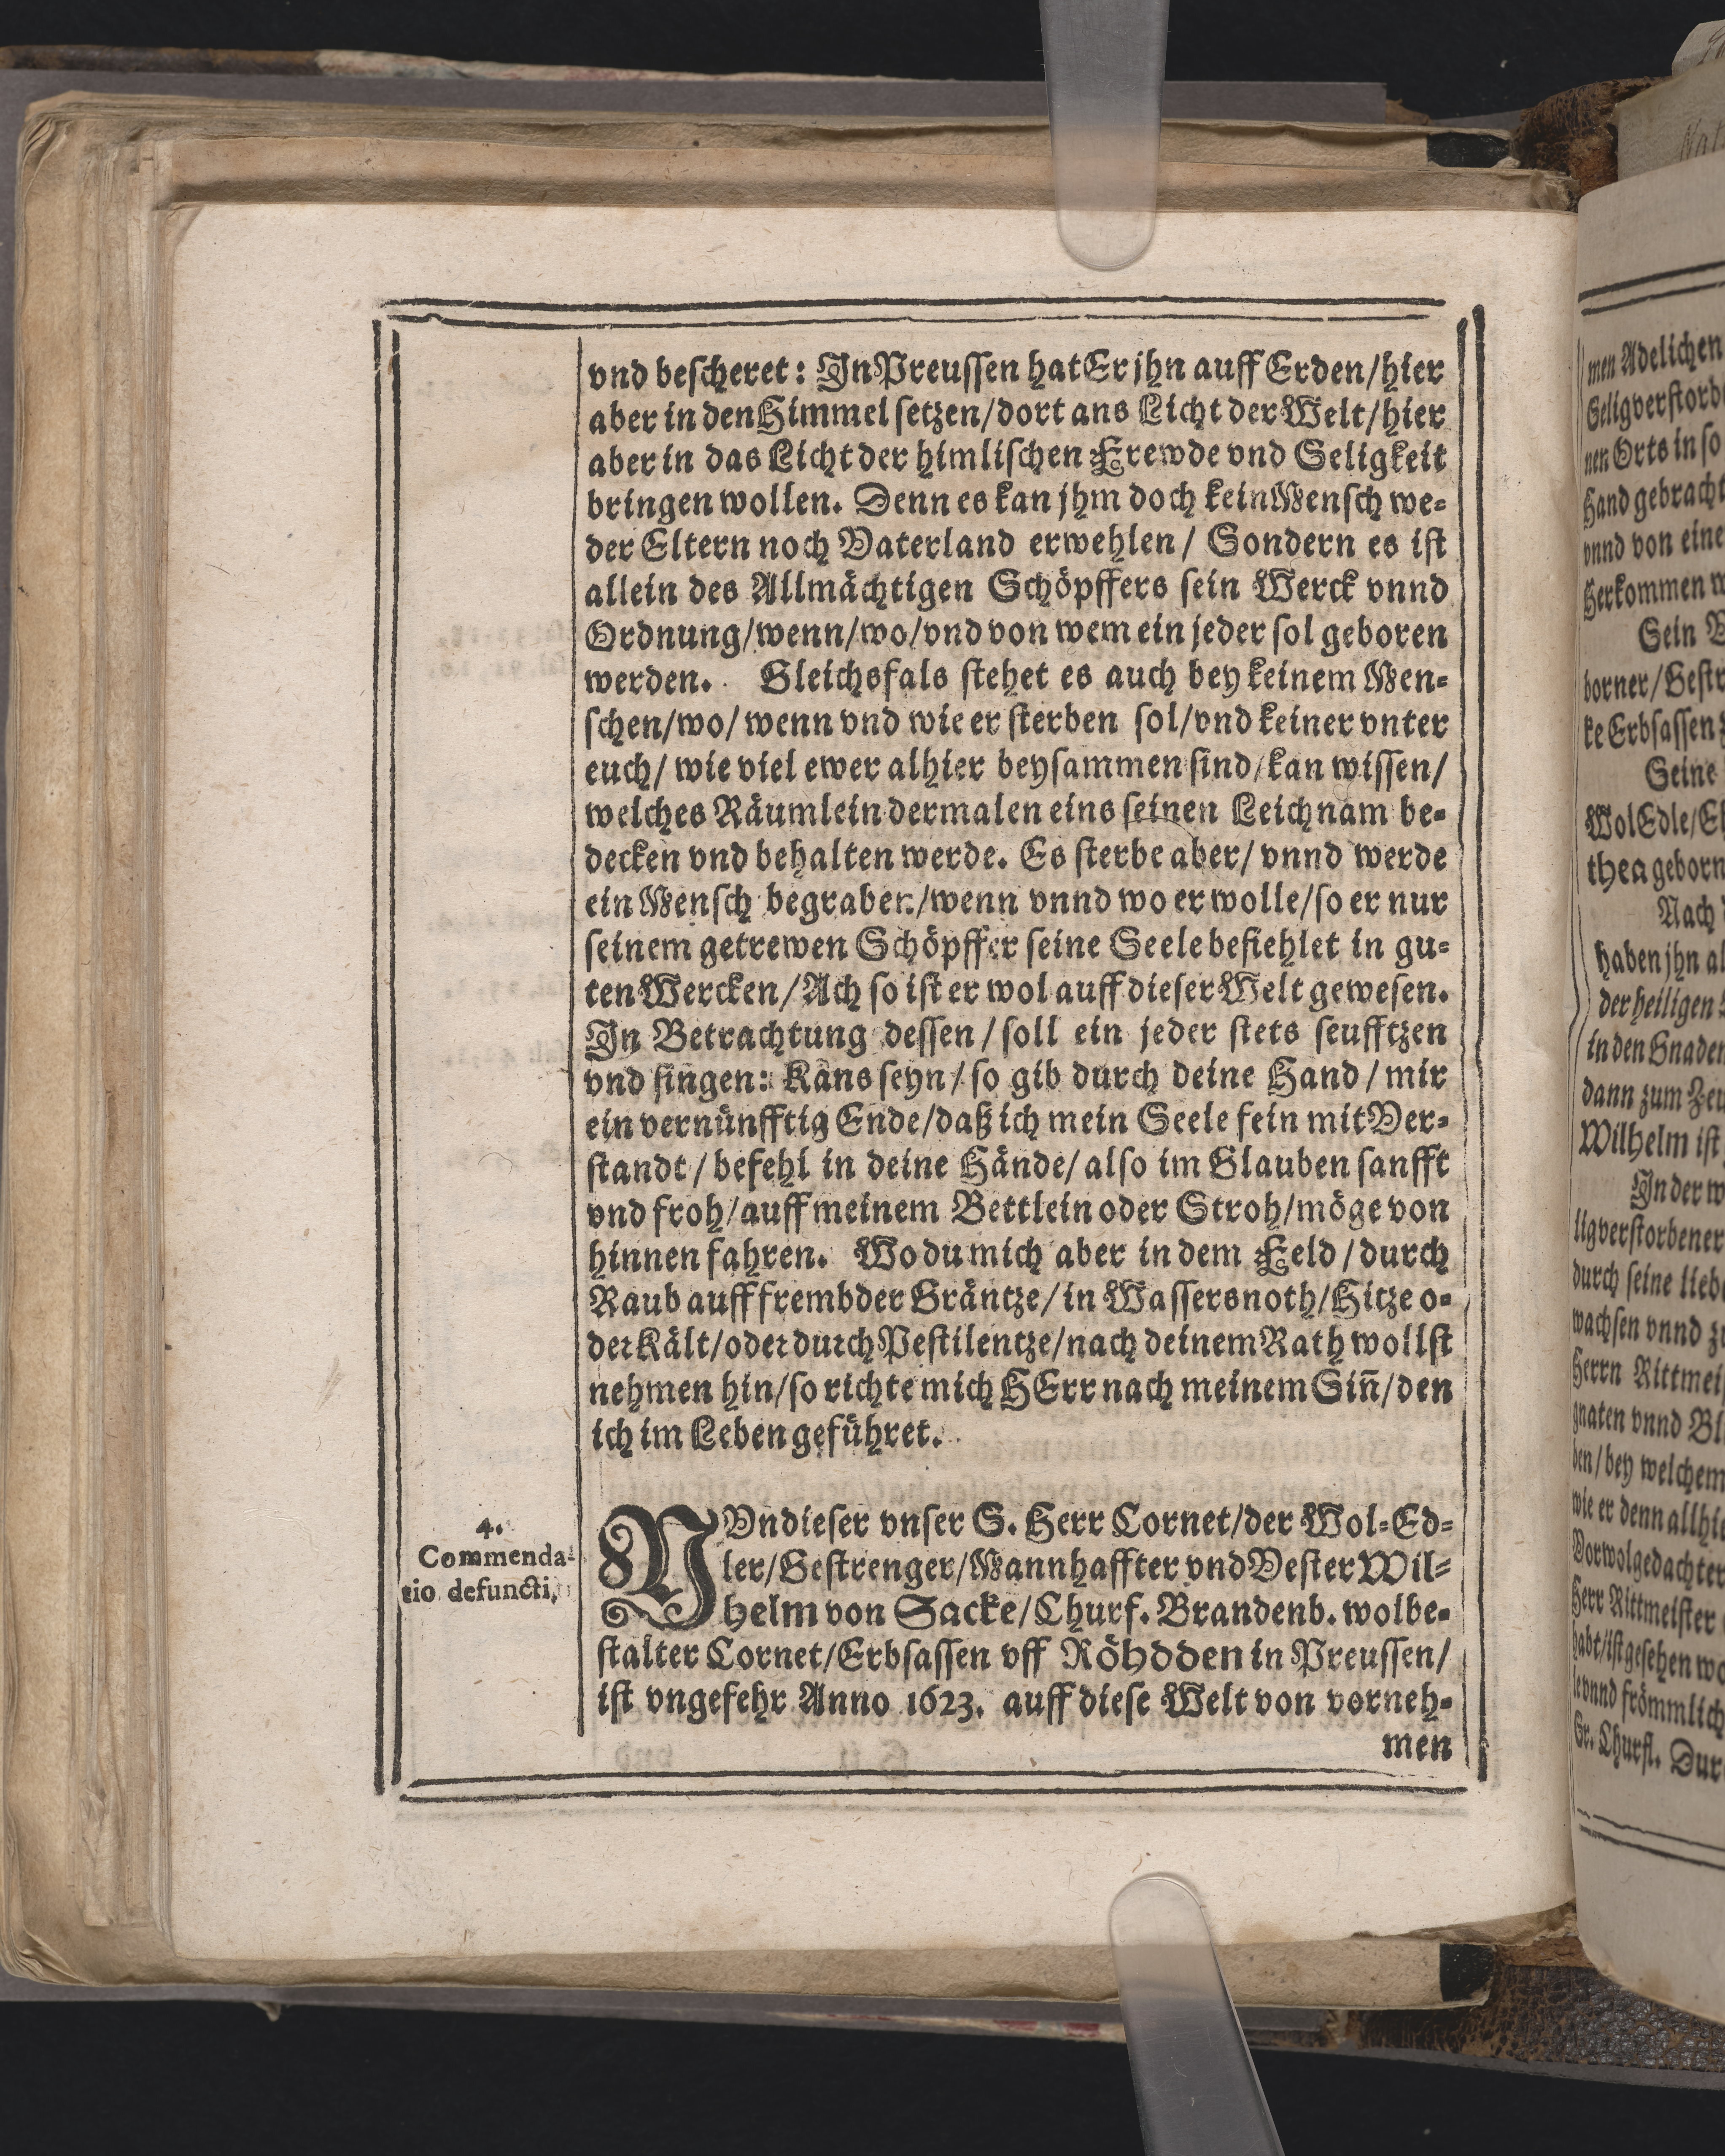 vnd bescheret: In Preussen hat Er jhn auff Erden/hier
aber in den Himmel setzen/dort ans Licht der Welt/hier
aber in das Licht der himlischen Frewde vnd Seligkeit
bringen wollen. Denn es kan jhm doch kein Mensch we-
der Eltern noch Vaterland erwehlen/ Sondern es ist
allein des Allmächtigen Schöpffers sein Werck vnnd
Ordnung/wenn/wo/vnd von wem ein jeder sol geboren
werden. Gleichsfals stehet es auch bey keinem Men-
schen/wo/ wenn vnd wie er sterben sol/vnd keiner vnter
euch/ wie viel ewer alhier beysammen sind/kan wissen/
welches Räumlein dermalen eins seinen Leichnam be-
decken vnd behalten werde. Es sterbe aber/ vnnd werde
ein Mensch begraben/wenn vnnd wo er wolle/so er nur
seinem getrewen Schöpffer seine Seele befiehlet in gu-
ten Wercken/Ach so ist er wol auff dieser Welt gewesen.
In Betrachtung dessen/soll ein jeder stets seufftzen
vnd singen: Kans seyn/so gib durch deine Hand/mir
ein vernünfftig Ende/daß ich mein Seele fein mit Ver-
standt/befehl in deine Hände/also im Glauben sanfft
vnd froh/auff meinem Bettlein oder Stroh/möge von
hinnen fahren. Wo du mich aber in dem Feld/durch
Raub auff frembder Gräntze/in Wassersnoth/Hitze o-
der Kält/oder durch Pestilentze/nach deinem Rath wollst
nehmen hin/so richte mich HErr nach meinem Siñ/den
ich im Leben geführet.
4.
Commenda-
tio defuncti,
NVn dieser vnser S. Herr Cornet/der Wol-Ed-
ler/Gestrenger/Mannhaffter vnd Vester Wil-
helm von Sacke/Churf. Brandenb. wolbe-
stalter Cornet/Erbsassen vff Röhdden in Preussen/
ist vngefehr Anno 1623. auff diese Welt von vorneh-
men
men Adelichen
nen Orts in so
Hand gebracht
vnnd von eine
Herkommen
Sein
borner/Gestr
ke Erbsassen
Seine
Wol Edle/E
thea geborn
Nach
haben jhn al
der heiligen
in den Gnaden
dann zum Zeu
Wilhelm ist
In der w
ligverstorbener
durch seine lieb
wachsen vnnd z
Herrn Rittmei
gnaten vnnd Bl
den/bey welchem
wie er denn allhie
Vorwolgedachter
Herr Rittmeister
habt/ist gesehen wo
le vnnd frömmlich
Sr. Churfl. Dur